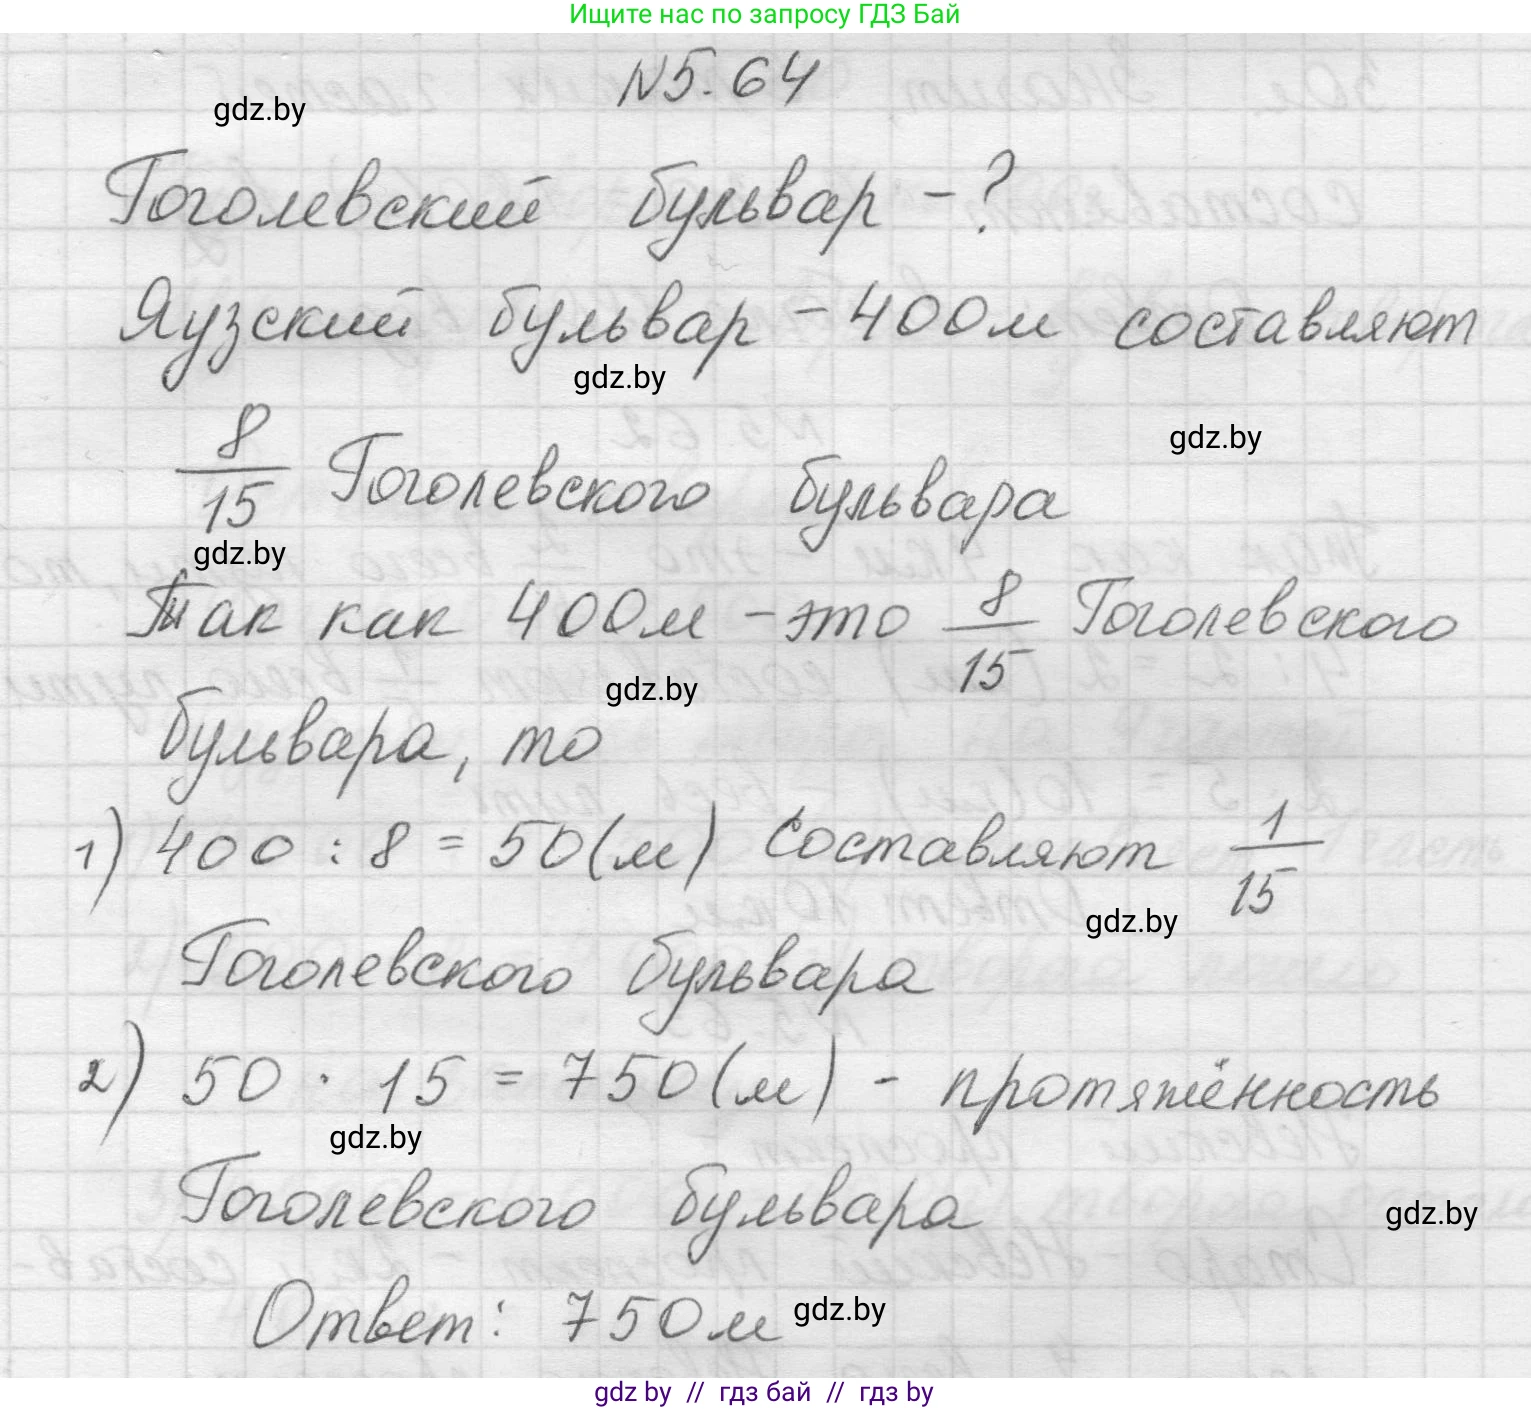 Ищите нас по запросу ГДЗ Бай
N5.64
gdz.by
Гоголевский бульвар - ?
Яузский бульвар - 400м составляют
gdz.by
gdz.by
8/15 Гоголевского бульвара
gdz.by
Так как 400м - это 8/15 Гоголевского
gdz.by
бульвара, то
1) 400 : 8 = 50(м) составляют 1/15
gdz.by
Гоголевского бульвара
2) 50 · 15 = 750(м) - протяжённость
gdz.by
Гоголевского бульвара
gdz.by
Ответ: 750м
gdz.by
gdz by // гдз бай // гдз by